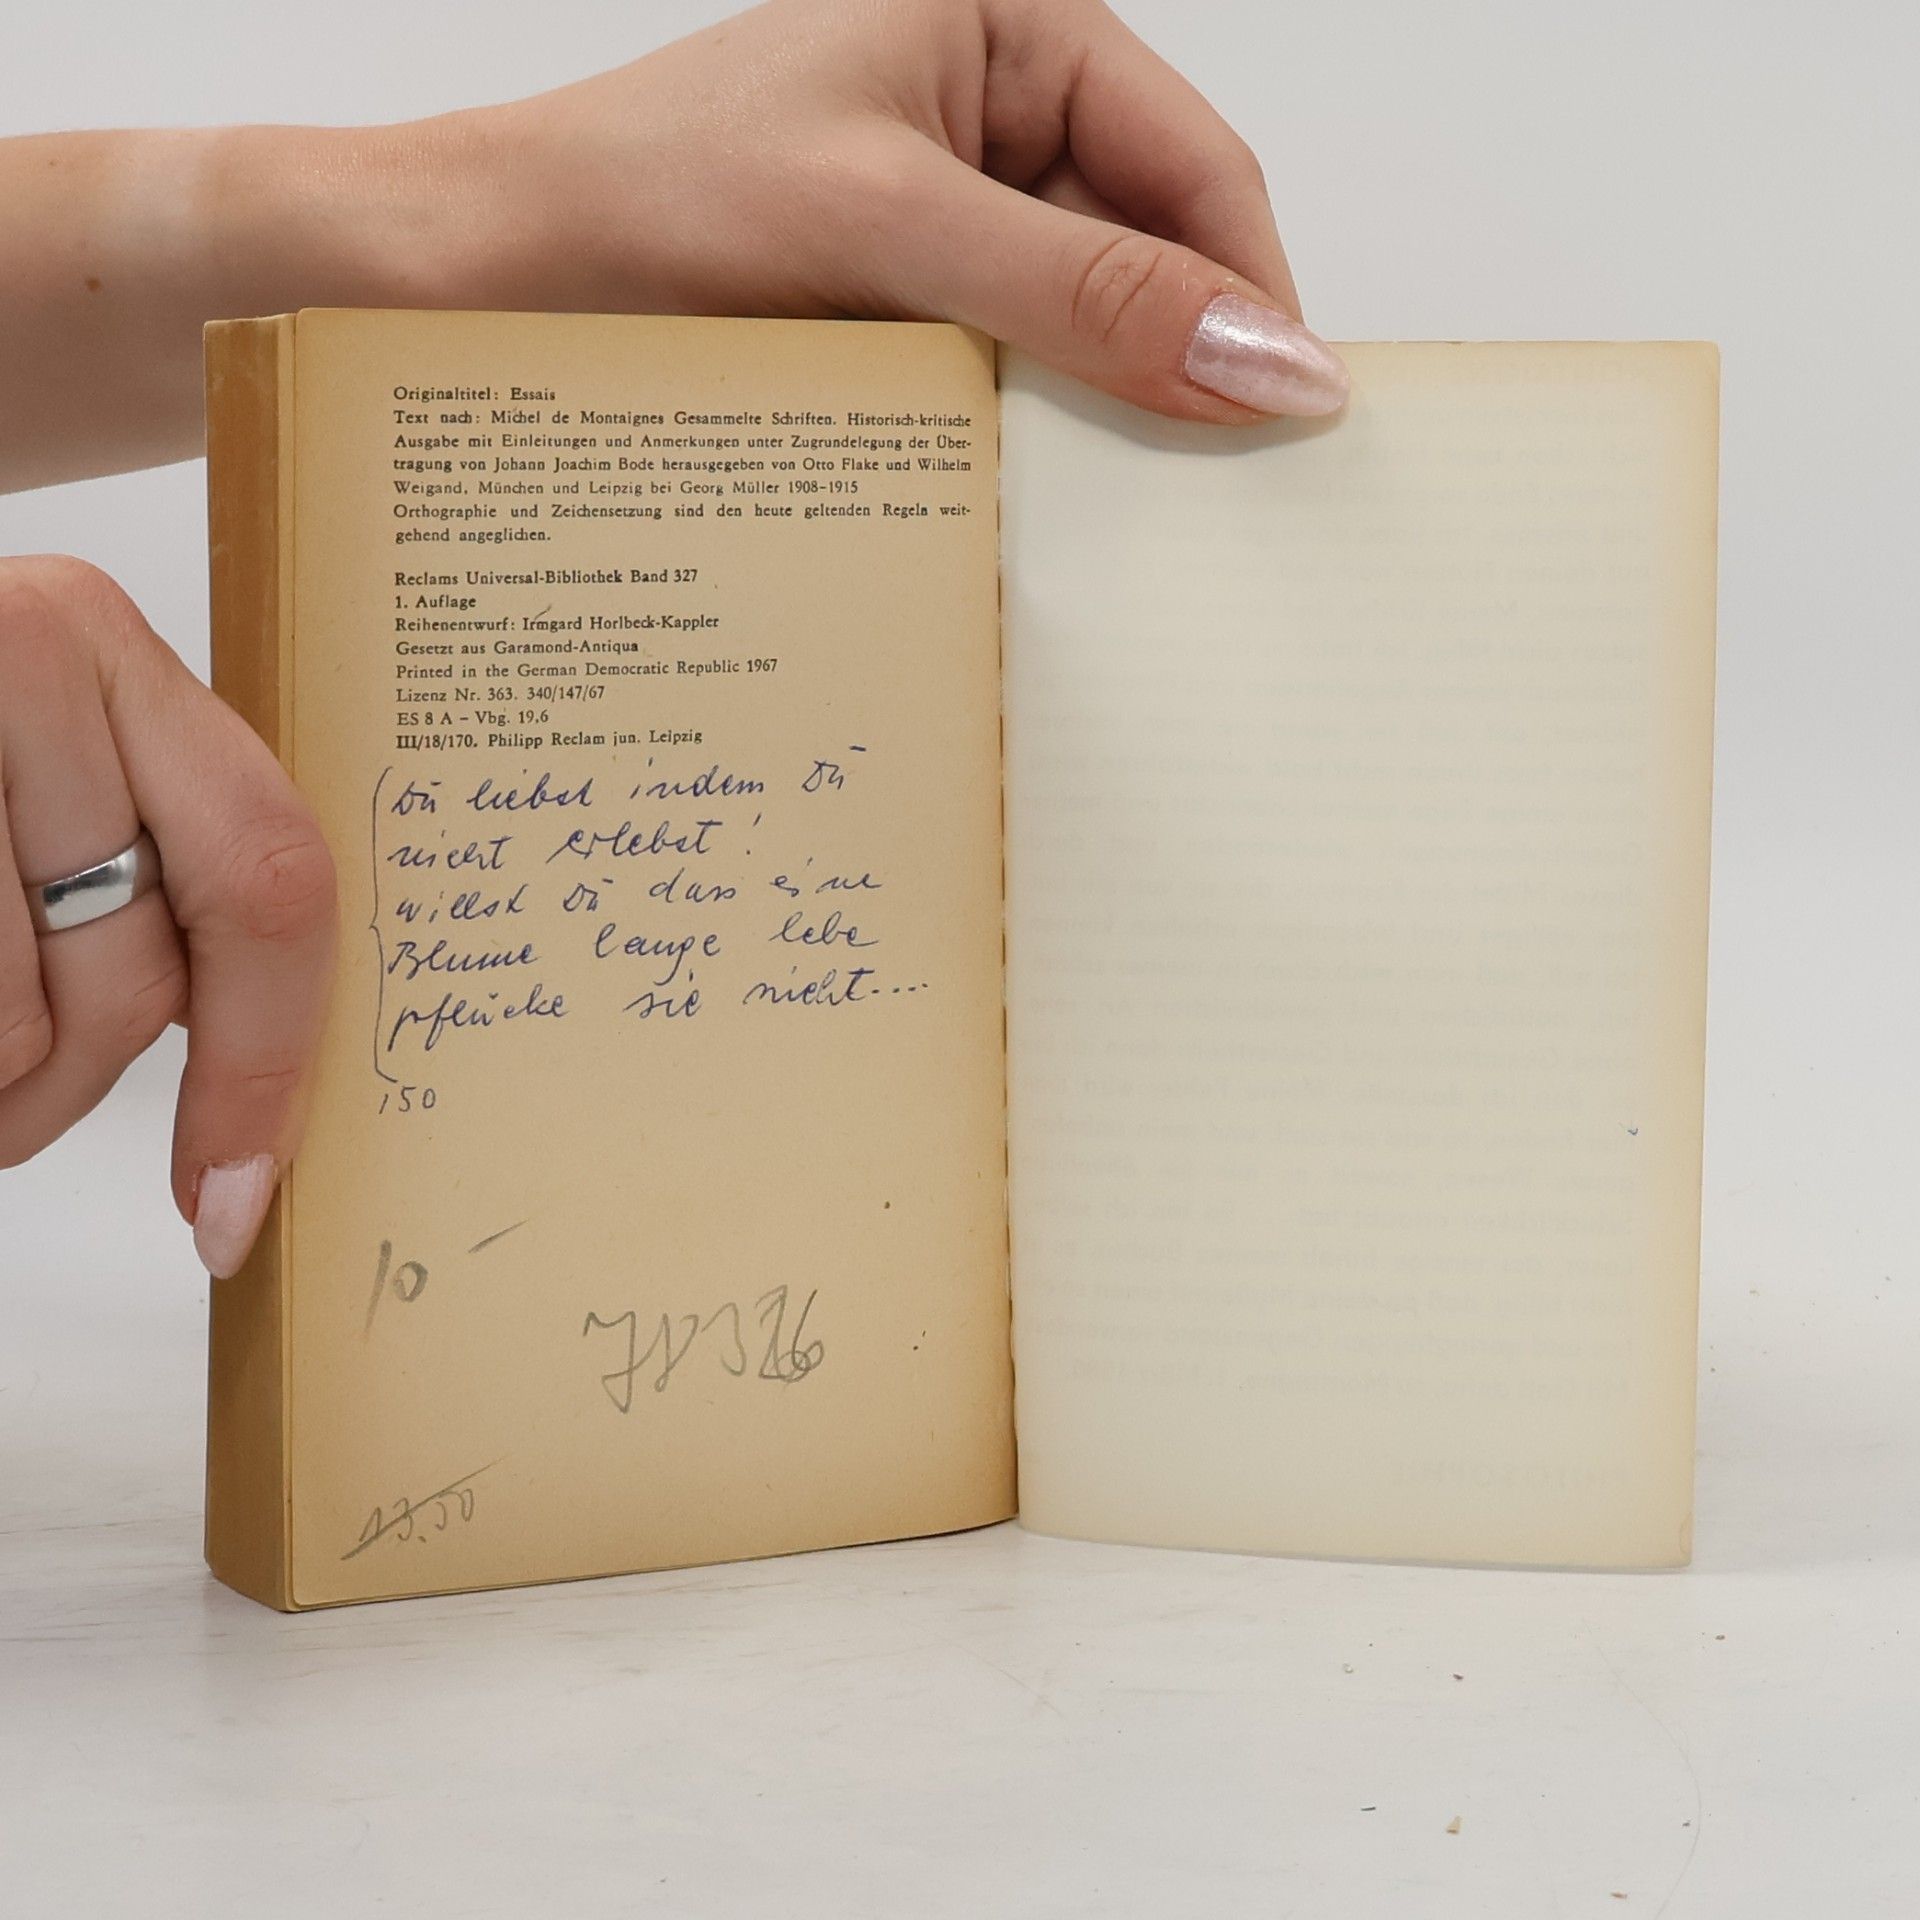 Originaltitel: Essais
Text nach: Michel de Montaignes Gesammelte Schriften. Historisch-kritische
Ausgabe mit Einleitungen und Anmerkungen unter Zugrundelegung der Über-
tragung von Johann Joachim Bode herausgegeben von Otto Flake und Wilhelm
Weigand, München und Leipzig bei Georg Müller 1908-1915
Orthographie und Zeichensetzung sind den heute geltenden Regeln weit-
gehend angeglichen.
Reclams Universal-Bibliothek Band 327
1. Auflage
Reihenentwurf: Irmgard Horlbeck-Kappler
Gesetzt aus Garamond-Antiqua
Printed in the German Democratic Republic 1967
Lizenz Nr. 363. 340/147/67
ES 8 A – Vbg. 19,6
III/18/170. Philipp Reclam jun. Leipzig
Du liebst indem Du
nicht erlebst!
willst Du dass eine
Blume lange lebe
pflücke sie nicht....
150
10 –
13.50